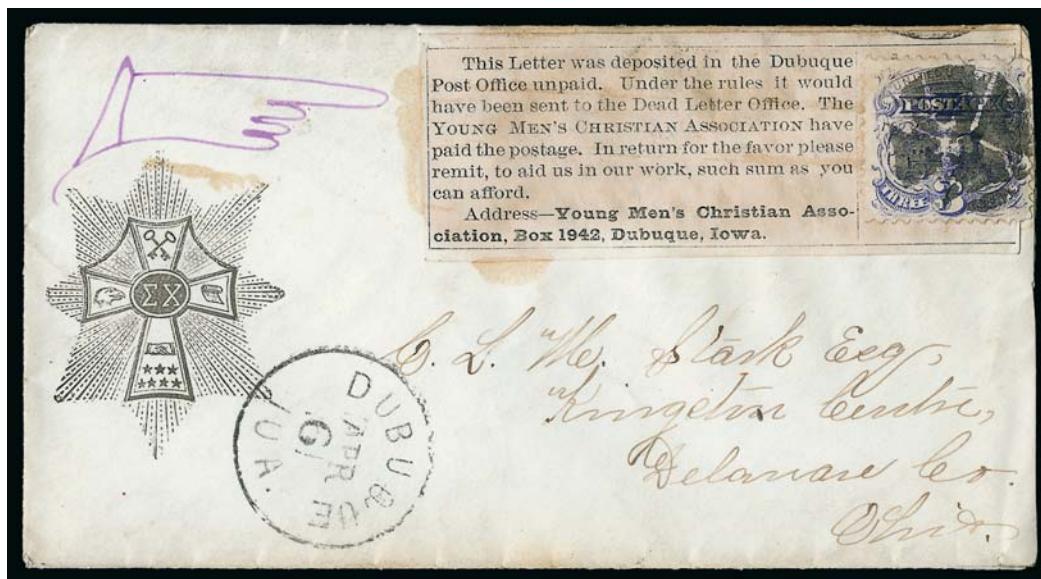 This Letter was deposited in the Dubuque
Post Office unpaid. Under the rules it would
have been sent to the Dead Letter Office. The
YOUNG MEN'S CHRISTIAN ASSOCIATION have
paid the postage. In return for the favor please
remit, to aid us in our work, such sum as you
can afford.
Address—Young Men's Christian Asso-
ciation, Box 1942, Dubuque, Iowa.
POSTAGE
THREE 3
ΣΧ
C. L. M. Stark Esq,
Kingston Centre,
Delaware Co.
Ohio.
DUBUQUE
APR
6
IOA.